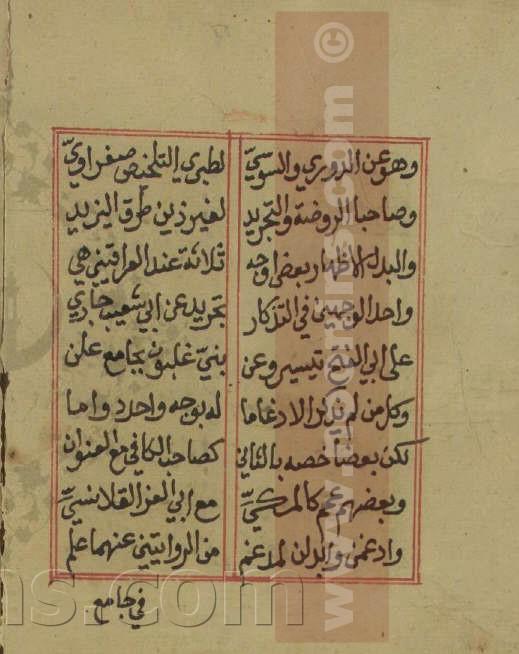 وهو عن الدوري والسوسيّ لطبري التلخيص صفراويّ
وصاحبا الروضة والتجريد لغير ذين طرق اليزيد
والبدل الاظهار بعض اوجه ثلاثة عند العراقيين هي
واحد الوجهين في التذكار تجريد عن ابي شعيب جاري
على ابي الفتح تيسير وعن بنيّ غلبون بجامع علن
وكل من لم يذكر الادغاما له بوجه واحد واما
لكن بعضا خصه بالثاني كصاحب الكافي مع العنوان
وبعضهم عم كالمكيّ مع ابي العز القلانسيّ
وادغمن وابدلن لمدغم من الروايتين عنهما علم
في جامع
© www.moomins.com
ns.com